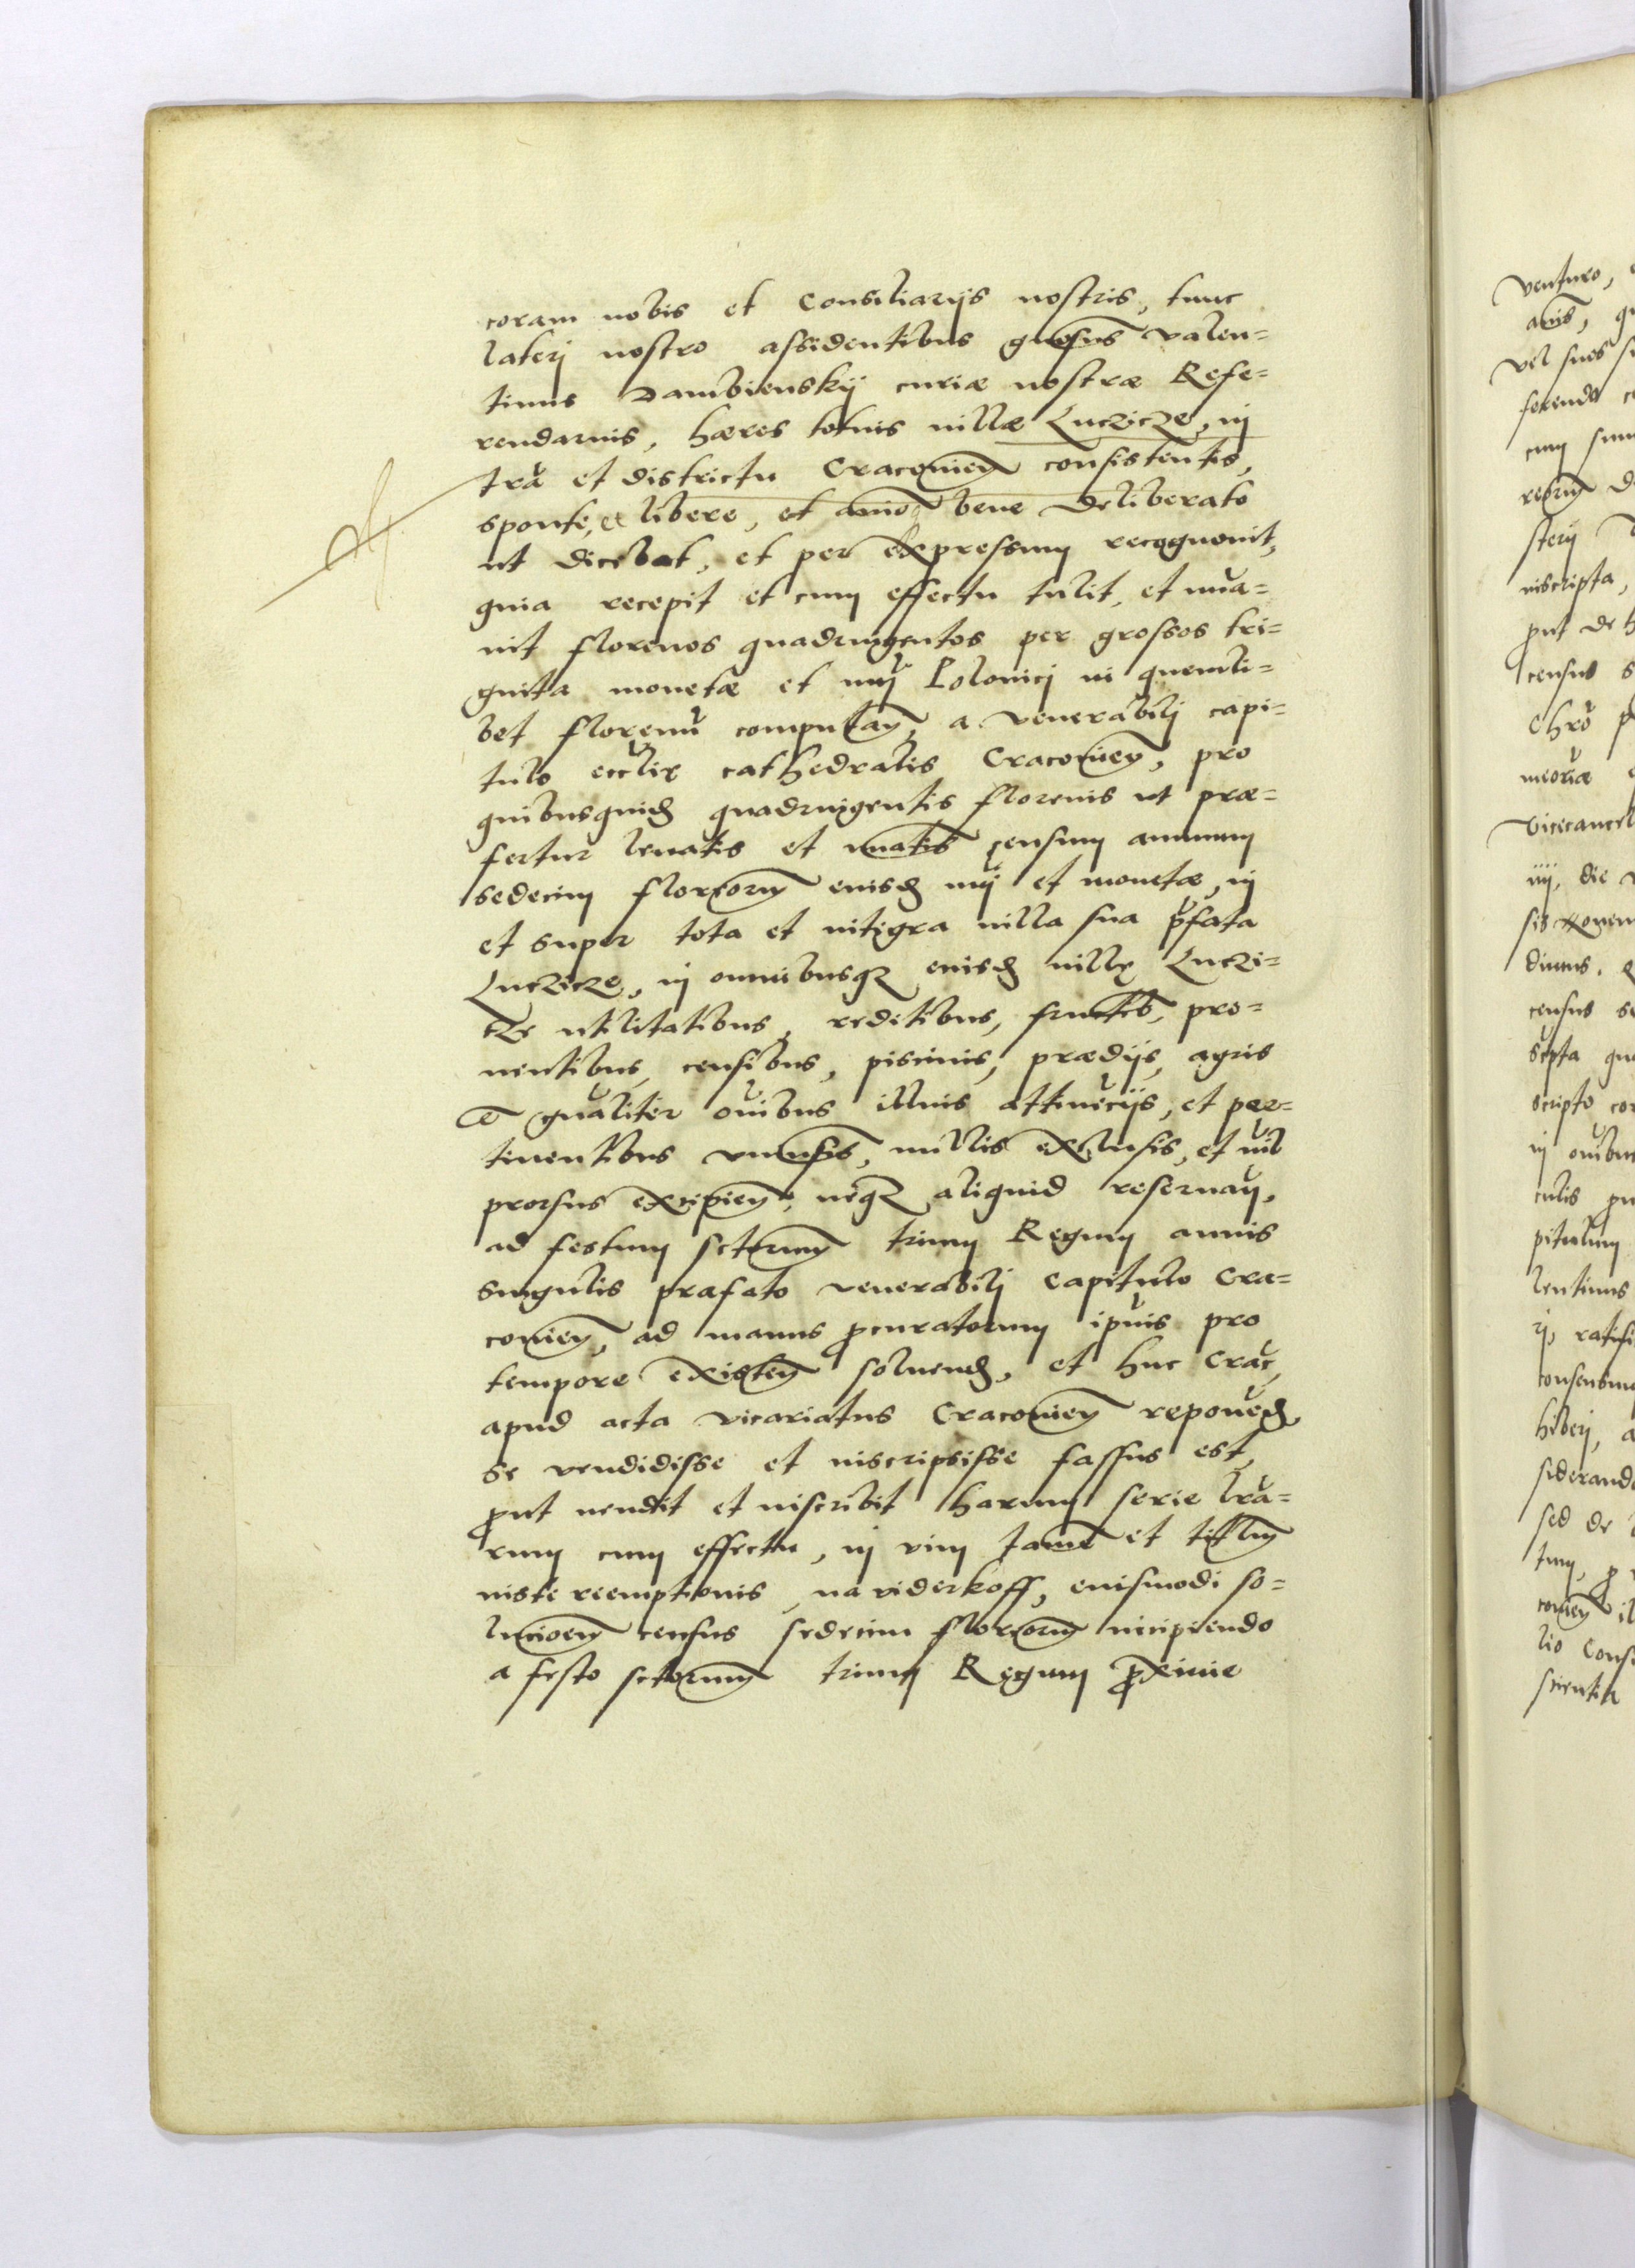 coram nobis et Consiliarijs nostris, tunc
laterj nostro assidentibus gnosus Valen=
tinus Dambienskÿ curiæ nostræ Refe=
rendarius, hæres totius uillæ Luczicze, in
tra et districtu Cracouien consistentis,
sponte, et libere, et animo bene deliberato
ut dicebat, et per expressum recognouit,
quia recepit et cum effectu tulit, et leua=
uit florenos quadringentos per grossos tri=
ginta monetæ et nuj Polonicj in quemli=
bet florenu computan, a venerabilj capi=
tulo eccliæ cathedralis Cracouien, pro
quibusquid quadringentis florenis ut præ=
fertur leuatis et leuatis censum annuum
sedecim florenorum eiusd nuj et monetæ, in
et super tota et integra uilla sua pfata
Luczicze, in omnibusq eiusd uillæ Luczi=
cze utilitatibus, reditibus, fructibus, pro=
uentibus, censibus, piscinis, prædijs, agris
et qualiter oibus illius attinecijs, et per=
tinentibus vniuersis, nullis exclusis, et nil
prorsus excipien, neq aliquid reseruan,
ad festum sctorum trium Regum annis
singulis præfato venerabilj Capitulo Cra=
couien, ad manus procuratorum ipius pro
tempore existen soluend, et huc Crac,
apud acta vicariatus Cracouien reponed,
se vendidisse et inscripsisse fassus est,
prout uendit et inscribit harum serie lra=
rum cum effectu, in vim tame et titlum
iuste reemptionis, na viderkoff, eiusmodi so=
lucioem census sedecim florenorum incipiendo
a festo sctorum trium Regum proxime
venturo,
vel suos
ferenda
cum sum
steri
inscripta,
prout de
census
Chro
vicecancel
iiij, die
census
oibus
pitulum
lentinus
sed de
lio Cons
scientia